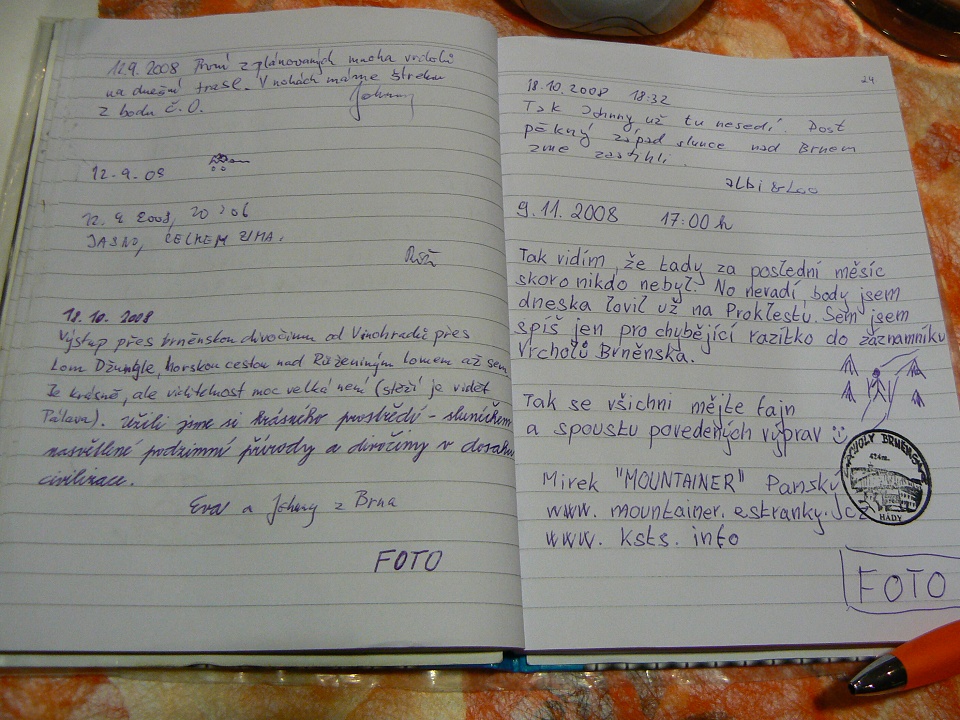 12.9.2008 První z plánovaných mnoha vrcholů
na dnešní trase. V nohách máme štreku
z bodu č. 0.
Johnny
12.9.08
12.9 2008, 20:06
JASNO, CELKEM ZIMA.
18.10. 2008
Výstup přes brněnskou divočinu od Vinohradů přes
Lom Džungle, horskou cestou nad Růženiným lomem až sem.
Je krásně, ale viditelnost moc velká není (stěží je vidět
Pálava). Užili jsme si krásného prostředí - sluníčkem
nasvětlené podzimní přírody a divočiny v dosahu
civilizace.
Eva a Johnny z Brna
FOTO
24
18.10.2008 18:32
Tak Johnny už tu nesedí. Dost
pěkný západ slunce nad Brnem
sme zastihli.
albi & Loo
9.11.2008 17:00 h
Tak vidím, že tady za poslední měsíc
skoro nikdo nebyl. No nevadí, body jsem
dneska lovil už na Proklestu. Sem jsem
spíš jen pro chybějící razítko do záznamníku
Vrcholů Brněnska.
Tak se všichni mějte fajn
a spoustu povedených výprav
Mirek "MOUNTAINER" Panský
www.mountainer.estranky.cz
www.ksts.info
VRCHOLY BRNĚNSKA
424m.
HÁDY
FOTO